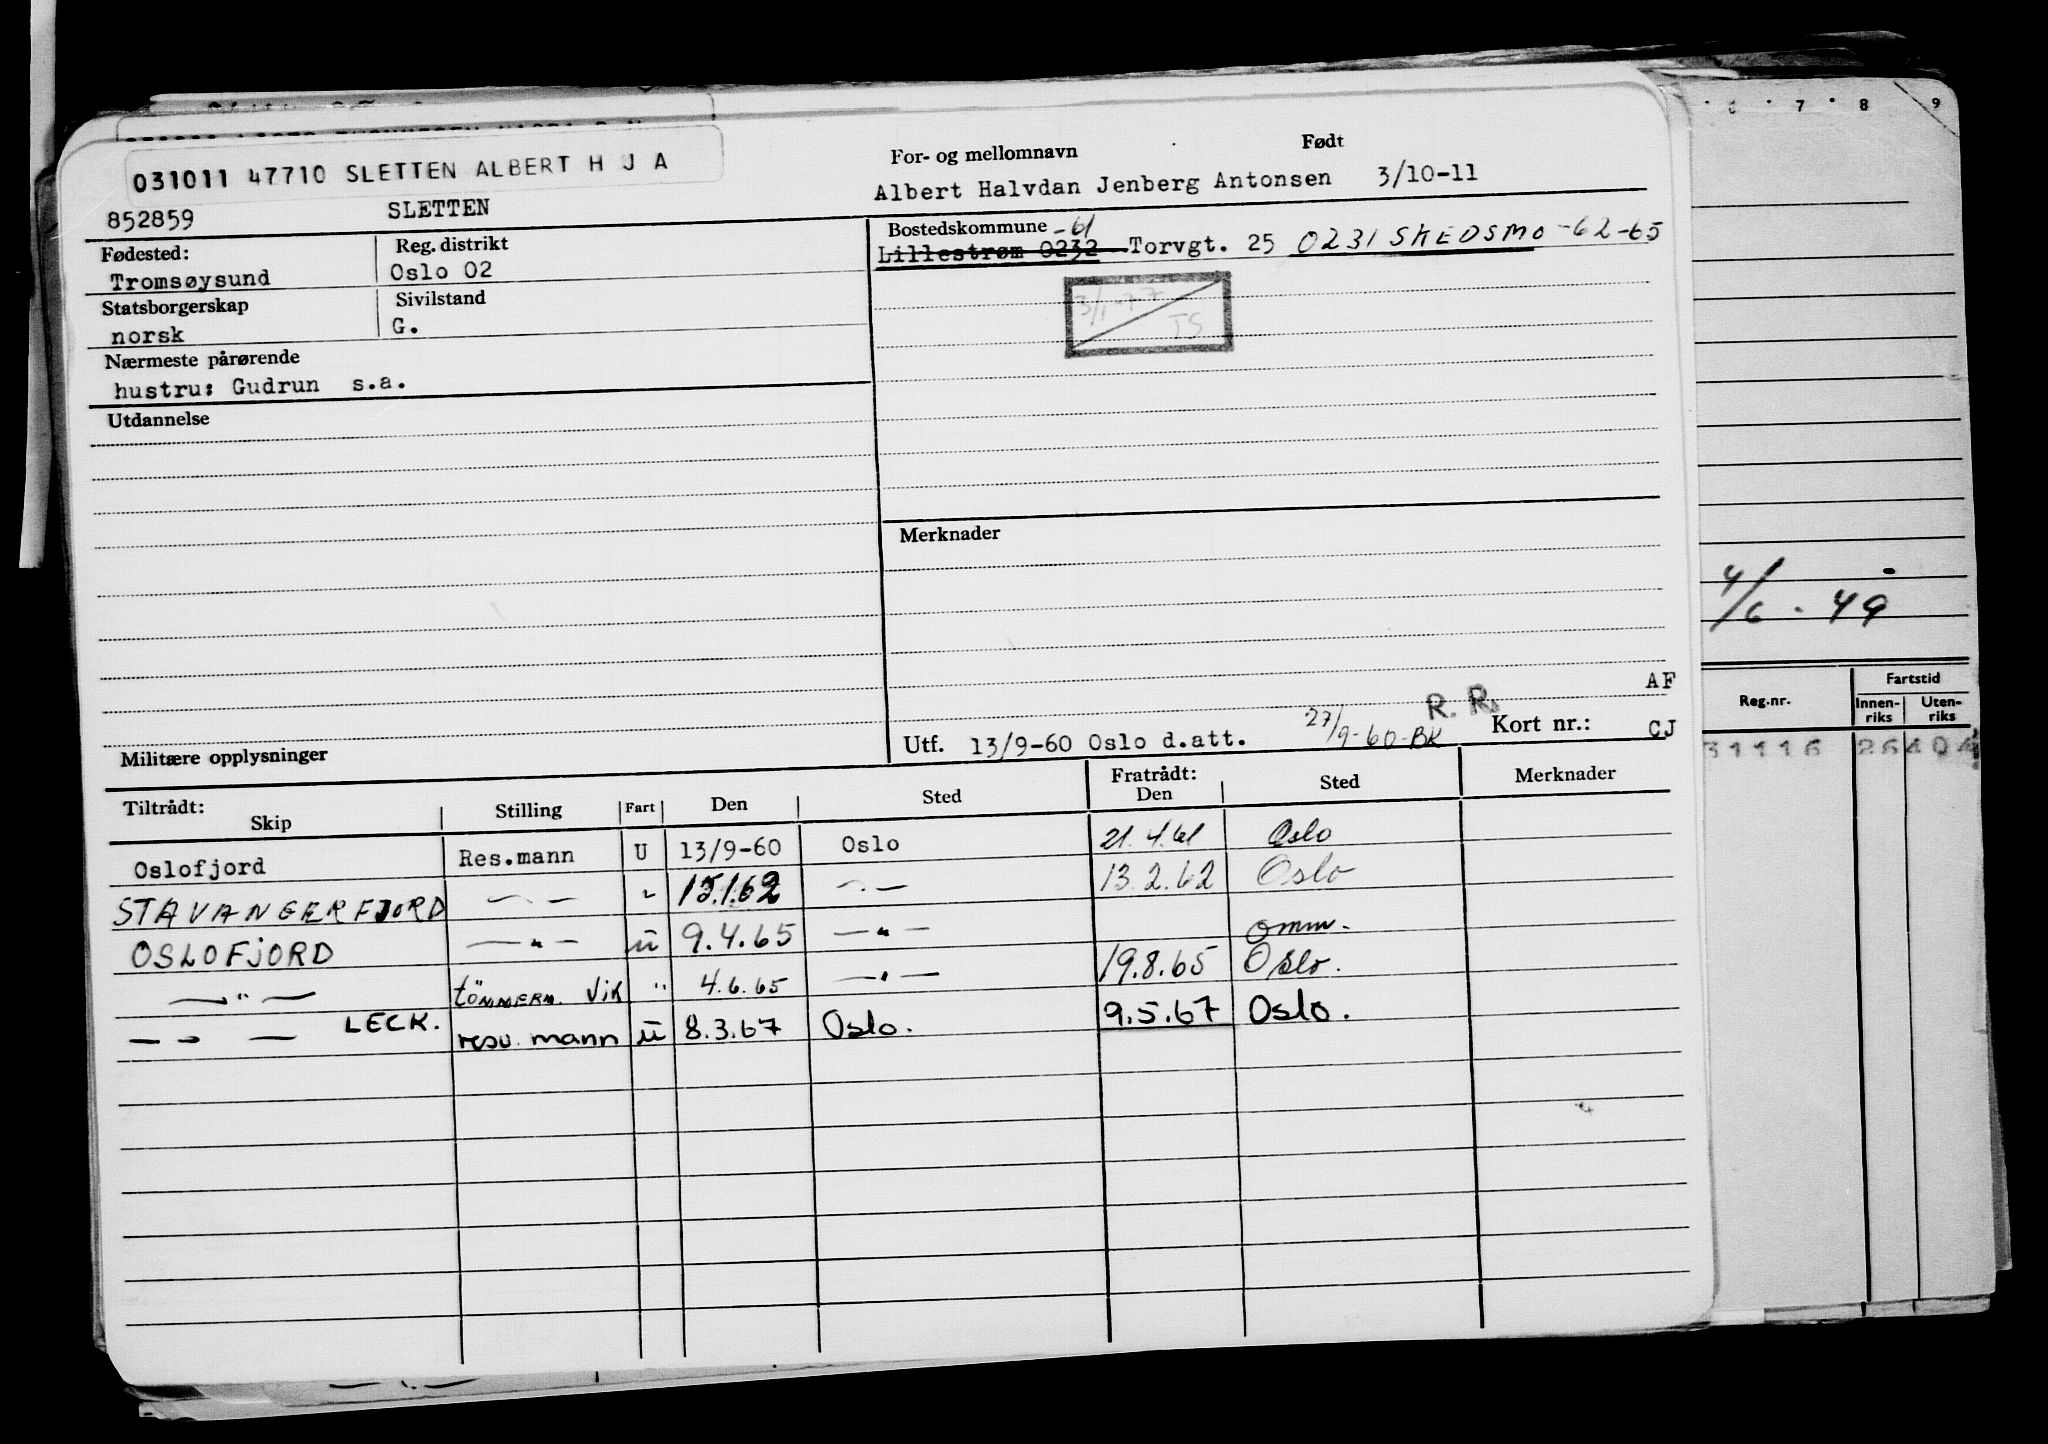 031011 47710 SLETTEN ALBERT H J A
For- og mellomnavn Født
Albert Halvdan Jenberg Antonsen 3/10-11
852859 SLETTEN
Fødested: Reg. distrikt
Tromsøysund Oslo 02
Bostedskommune -61
Lillestrøm 0232 Torvgt. 25 0231 SKEDSMO -62-65
Statsborgerskap Sivilstand
norsk G.
Nærmeste pårørende
hustru: Gudrun s.a.
Utdannelse
Merknader
AF
R. R.
27/9-60-BK
Utf. 13/9-60 Oslo d.att. Kort nr.: CJ
Militære opplysninger
Tiltrådt: Fratrådt:
Skip Stilling Fart Den Sted Den Sted Merknader
Oslofjord Res.mann U 13/9-60 Oslo 21.4.61 Oslo
STAVANGERFJORD —"— " 15.1.62 —"— 13.2.62 Oslo
OSLOFJORD —"— u 9.4.65 —"— omm.
—"— tömmerm. Vik " 4.6.65 —"— 19.8.65 Oslo.
—"— LECK. resv. mann u 8.3.67 Oslo. 9.5.67 Oslo.
6 7 8 9
4/6 - 49
Fartstid
Reg.nr. Innen-riks Uten-riks
31116 26 404